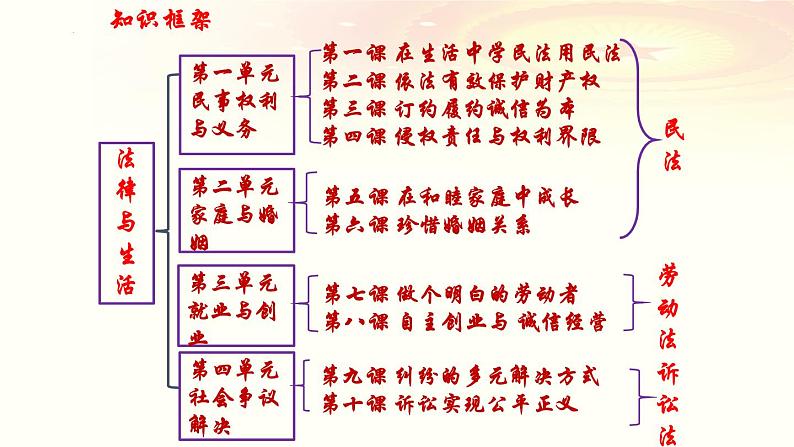 知识框架
法律与生活
第一单元
民事权利
与义务
第一课 在生活中学民法用民法
第二课 依法有效保护财产权
第三课 订约履约诚信为本
第四课 侵权责任与权利界限
第二单元
家庭与婚
姻
第五课 在和睦家庭中成长
第六课 珍惜婚姻关系
民法
第三单元
就业与创
业
第七课 做个明白的劳动者
第八课 自主创业与 诚信经营
劳动法
第四单元
社会争议
解决
第九课 纠纷的多元解决方式
第十课 诉讼实现公平正义
诉讼法